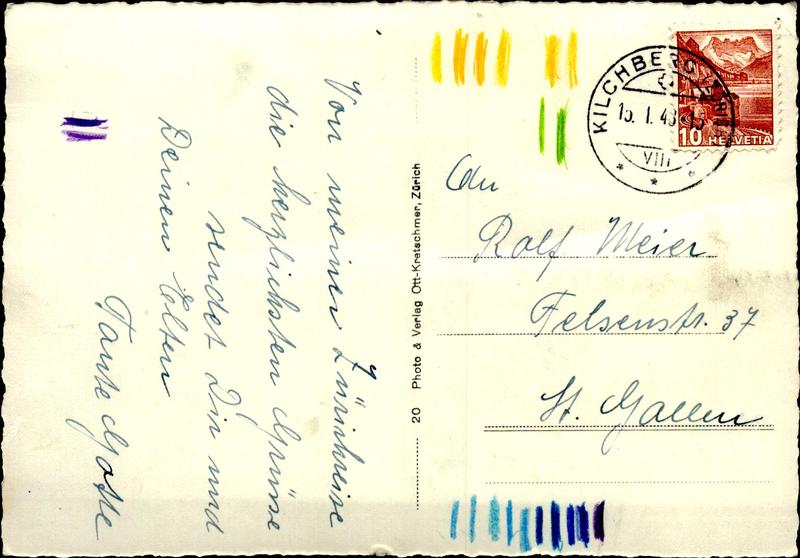 Von meiner Zürichreise
die herzlichsten Grüsse
sendet Dir und
Deinen Eltern
Tante Gotte
20 Photo & Verlag Ott-Kretschmer, Zürich
KILCHBERG
15. I. 43
VIII
10 HELVETIA
An
Rolf Meier
Felsenstr. 37
St. Gallen